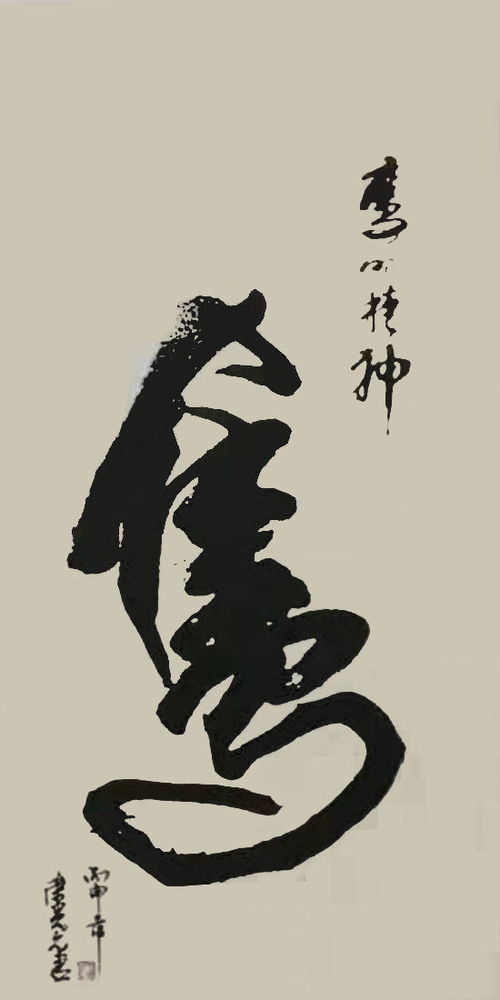 鹰的精神
鹰
丙申年